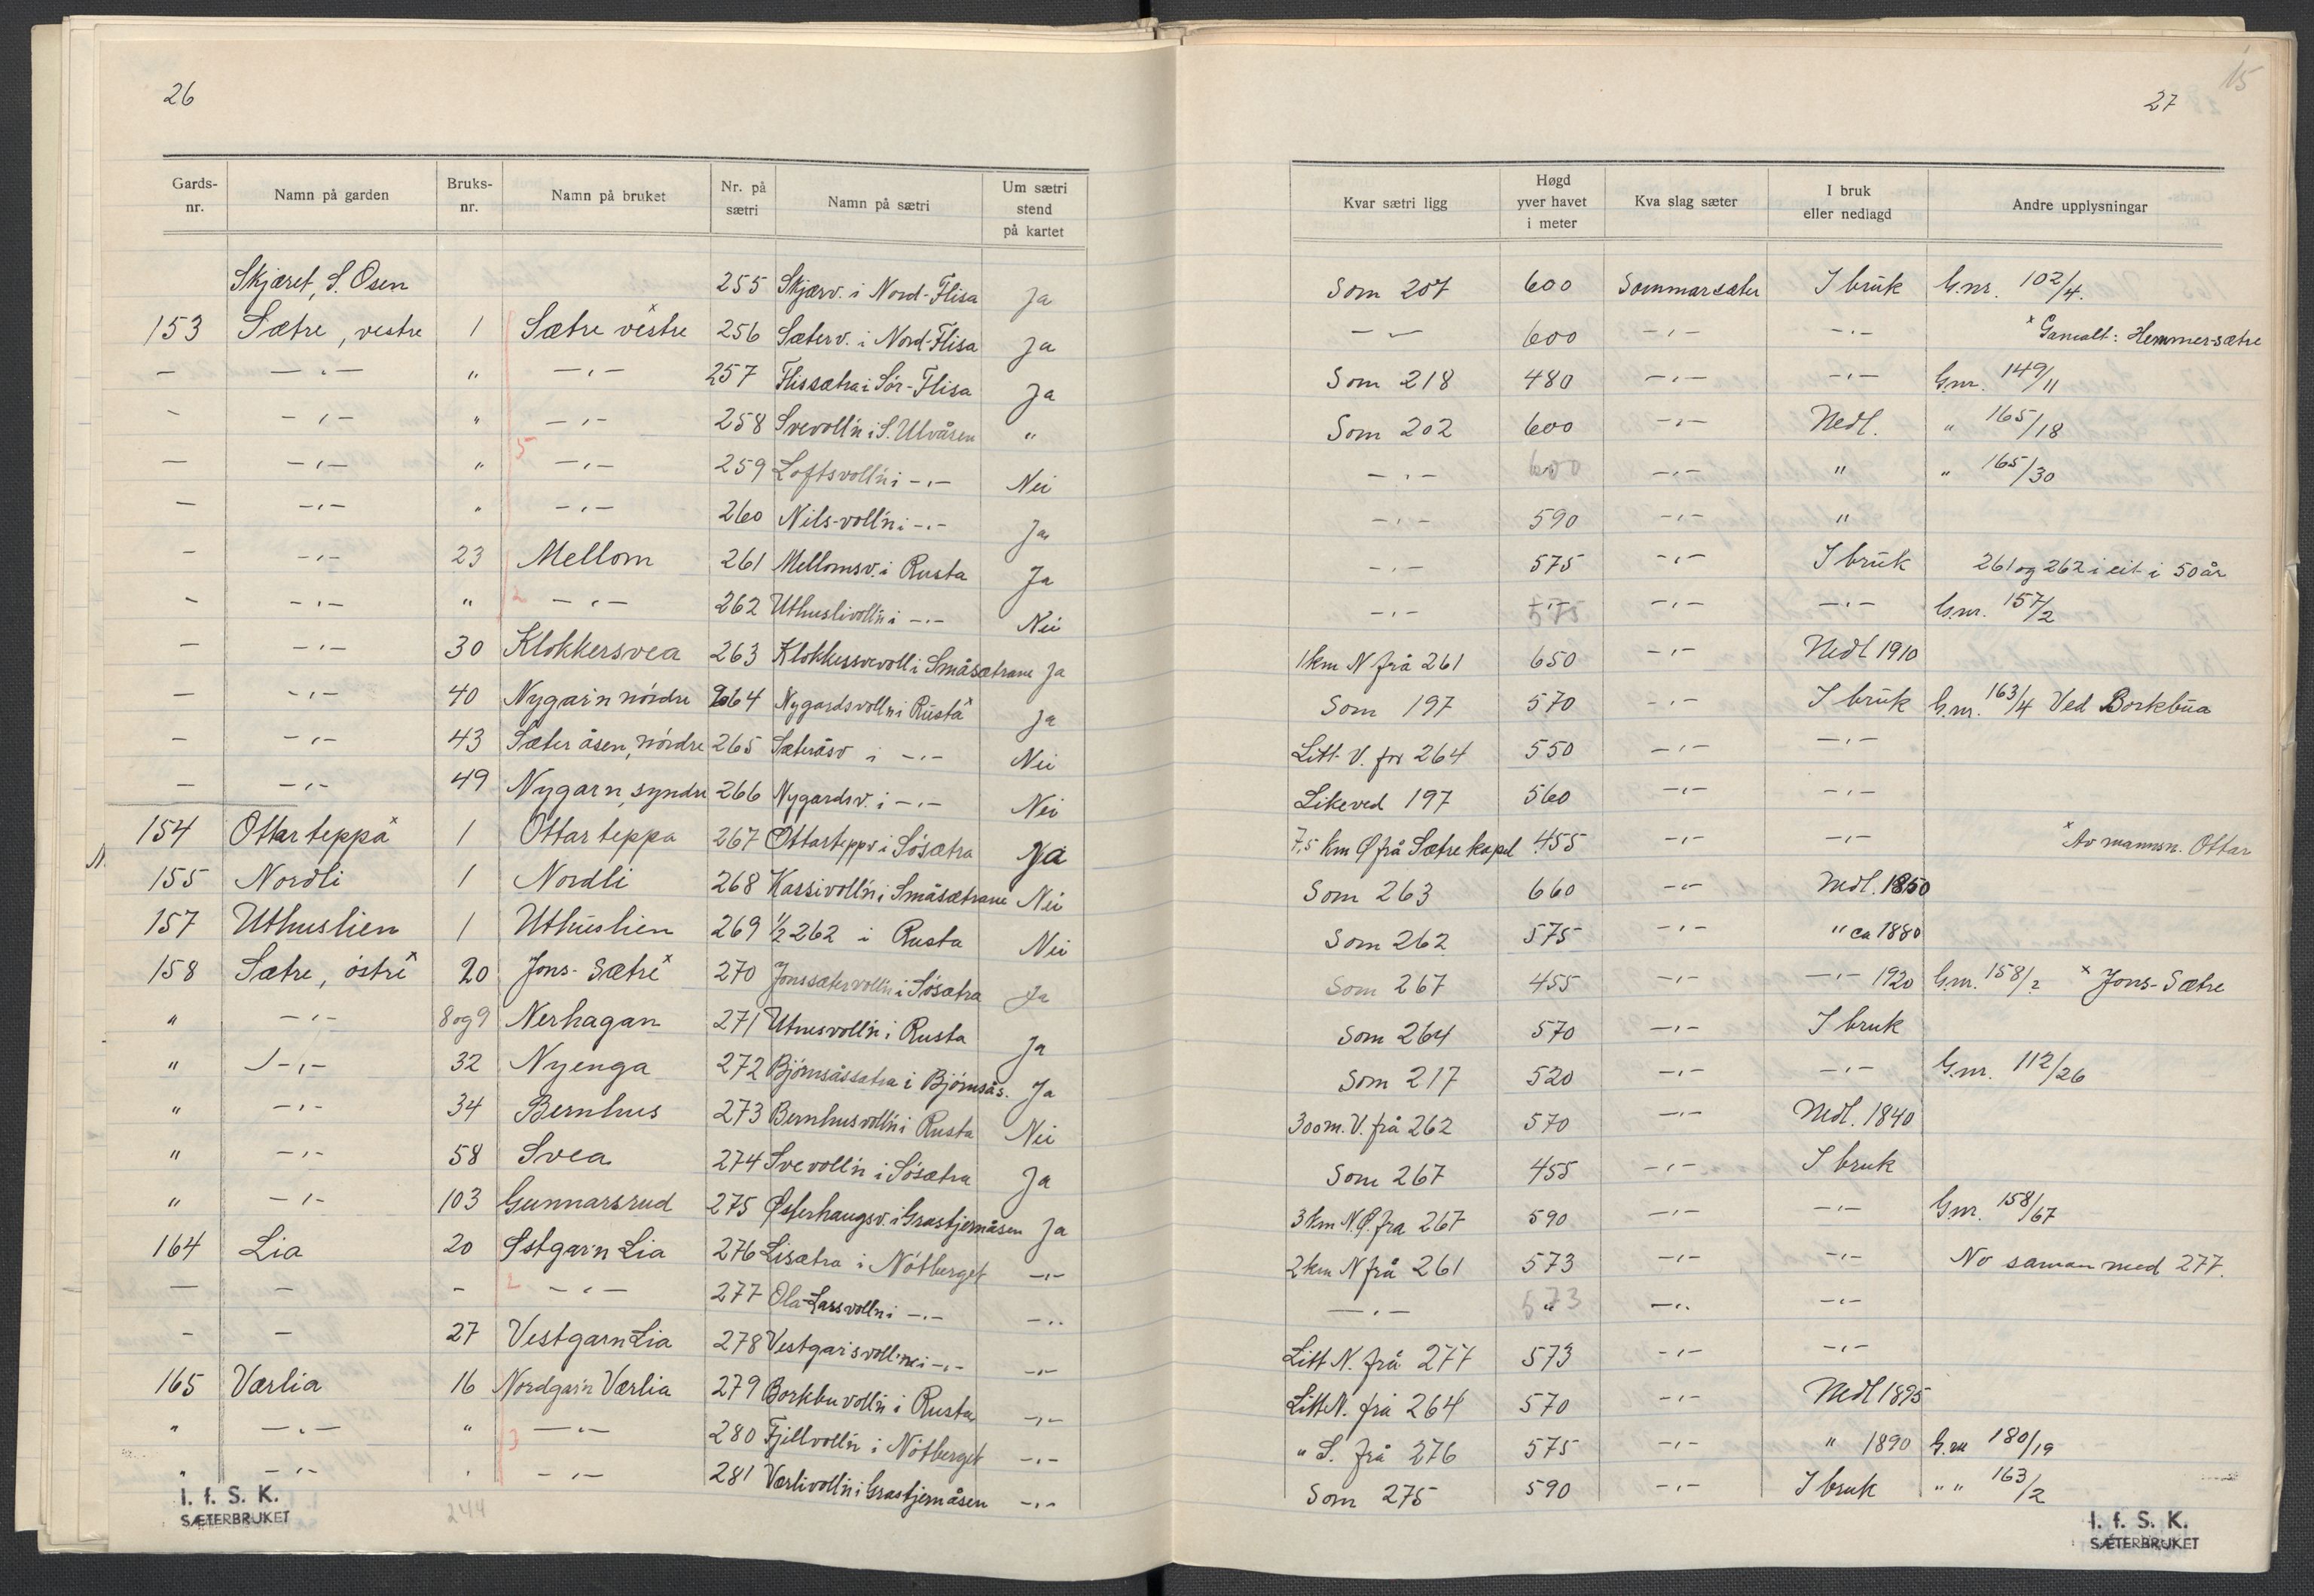 26
Gards-nr. | Namn på garden | Bruks-nr. | Namn på bruket | Nr. på sætri | Namn på sætri | Um sætri stend på kartet
Skjæret, S. Osen | 255 | Skjærv. i Nord-Flisa | Ja
153 | Sætre, vestre | 1 | Sætre vestre x | 256 | Sæterv. i Nord-Flisa | Ja
— | —„— | " | —„— | 257 | Flissætra i Sør-Flisa | Ja
- | -„- | " | -„- | 258 | Svevoll'n i S. Ulvåsen | "
— | -„- | " | -„- | 259 | Loftsvoll'n i -„- | Nei
— | -„- | " | -„- | 260 | Nils-voll'n i -„- | Ja
- | -„- | 23 | Mellom | 261 | Mellomsv. i Rusta | Ja
- | -„- | " | -„- | 262 | Uthuslivoll'n i -„- | Nei
- | -„- | 30 | Klokkersvea | 263 | Klokkersvevoll i Småsætrane | Ja
— | -„- | 40 | Nygar'n nordre | 264 | Nygardsvolln i Rusta x | Ja
- | -„- | 43 | Sæteråsen, nordre | 265 | Sæteråsv i -„- | Nei
— | -„- | 49 | Nygarn, syndre | 266 | Nygardsv. i -„- | Nei
154 | Ottarteppa x | 1 | Ottarteppa | 267 | Ottarteppv i Søsætra | Ja
N. 155 | Nordli | 1 | Nordli | 268 | Kassivoll'n i Småsætrane | Nei
157 | Uthuslien | 1 | Uthuslien | 269 | 1/2 262 i Rusta | Nei
158 | Sætre, østre x | 20 | Jons-Sætre x | 270 | Jonssætervoll'n i Søsætra | Ja
" | -„- | 8og9 | Nerhagan | 271 | Utnesvoll'n i Rusta | Ja
" | -„- | 32 | Nyenga | 272 | Bjørnsåssætra i Bjørnsås. | Ja
" | -„- | 34 | Bernhus | 273 | Bernhusvoll'n i Rusta | Nei
" | -„- | 58 | Svea | 274 | Svevoll'n i Søsætra | Ja
" | -„- | 103 | Gunnarsrud | 275 | Østerhaugsv. i Grastjernåsen | Ja
164 | Lia | 20 | Østgar'n Lia | 276 | Lisætra i Nøtberget | -„-
— | — | - | -„- | 277 | Ola-Larsvolln i -„- | -„-
- | — | 27 | Vestgarn Lia | 278 | Vestgarsvoll'n i -„- | -„-
165 | Værlia | 16 | Nordgar'n Værlia | 279 | Borkbuvoll'n i Rusta | -„-
" | -„- | " | —„— | 280 | Fjellvoll'n i Nøtberget | -„-
" | -„- | " | -„- | 281 | Værlivoll'n i Grastjernåsen | -„-
5
2
2
3
244
I. f. S. K.
SÆTERBRUKET
15
27
Kvar sætri ligg | Høgd yver havet i meter | Kva slag sæter | I bruk eller nedlagd | Andre upplysningar
Som 207 | 600 | Sommarsæter | I bruk | G.nr. 102/4.
— — | 600 | -„- | -„- | x Gamalt: Hemmer-sætre
Som 218 | 480 | -„- | -„- | G.nr. 149/11
Som 202 | 600 | -„- | Nedl. | " 165/18
-„- | 600 | -„- | " | " 165/30
-„- | 590 | -„- | "
-„- | 575 | -„- | I bruk | 261 og 262 i eit i 50 år
-„- | 575 | -„- | -„- | G.nr. 157/2
1 km N frå 261 | 650 | -„- | Nedl 1910
Som 197 | 570 | -„- | I bruk | G.nr. 163/4 Ved Borkbua
Litt V. for 264 | 550 | -„- | -„-
Like ved 197 | 560 | -„- | -„-
7,5 km Ø frå Sætre kapel | 455 | -„- | -„- | x Av mannsn. Ottar
Som 263 | 660 | -„- | Nedl. 1850
Som 262 | 575 | -„- | " ca 1880
Som 267 | 455 | -„- | -„- 1920 | G.nr. 158/2 x Jons-Sætre
Som 264 | 570 | -„- | I bruk
Som 217 | 520 | -„- | -„- | G.nr. 112/26
300m. V. frå 262 | 570 | -„- | Nedl. 1840
Som 267 | 455 | -„- | I bruk
3 km N.Ø. fra 267 | 590 | -„- | -„- | G.nr. 158/67
2 km N frå 261 | 573 | -„- | -„- | No saman med 277.
-„- | 573 | -„- | -„-
Litt N. frå 277 | 573 | -„- | -„-
Litt N. frå 264 | 570 | -„- | Nedl 1895
" S. frå 276 | 575 | -„- | " 1890 | G.nr 180/19
Som 275 | 590 | -„- | I bruk | " " 163/2
I. f. S. K.
SÆTERBRUKET